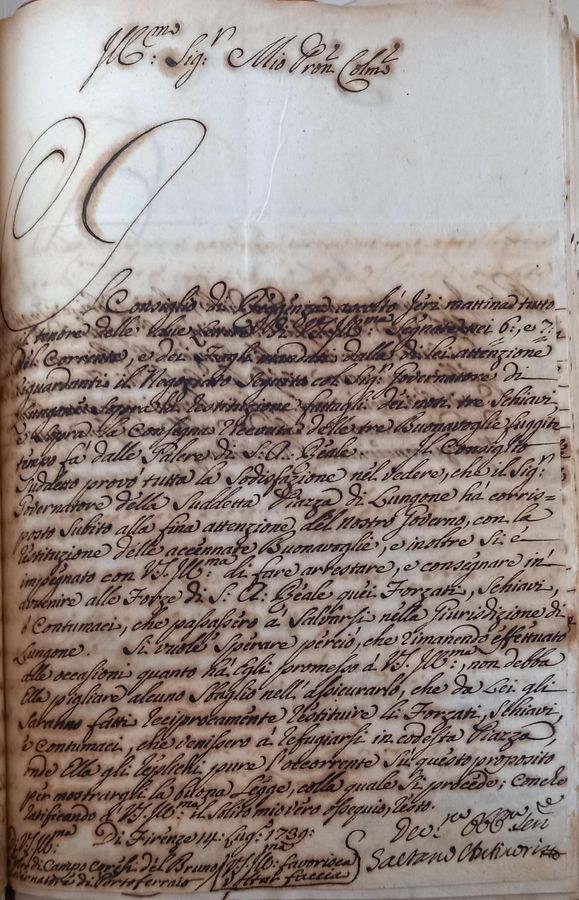 Ill:mo Sig:r Mio Pron: Colmo
Il Consiglio di Reggenza ascoltò Jeri mattina tutto
il tenore delle due lettere di VS. Ill:ma Segnate nei 6: e 7:
del Corrente, e dei Fogli mandati dalla di lei attenzione
riguardanti il Negoziato Seguito col Sig:r Governatore di
Lungone sopra la restituzione fattagli dei noti tre Schiavi
e sopra la Consegna ricevuta delle tre Buonavoglie fuggite
tempo fà dalle Galere di S: A: Reale. Il Consiglio
Suddetto provò tutta la Sodisfazione nel vedere, che il Sig:r
Governatore della Suddetta Piazza di Lungone hà corris=
posto Subito alla fina attenzione del Nostro Governo, con la
restituzione delle accennate Buonavoglie, e inoltre Si è
impegnato con VS. Ill:ma di fare arrestare, e consegnare in
avvenire alle Forze di S: A: Reale quei Forzati, Schiavi,
ò Contumaci, che passassero à Salvarsi nella Giurisdizione di
Lungone. Si vuole Sperare perciò, che rimanendo effettuato
alle occasioni quanto hà Egli promesso à VS. Ill:ma, non debba
Ella pigliare alcuno Sbaglio nell'assicurarlo, che da Lei gli
Saranno fatti reciprocamente restituire li Forzati, Schiavi,
e Contumaci, che venissero à refugiarsi in codesta Piazza,
onde Ella gli replichi pure l'occorrente Sù questo proposito
per mostrargli la buona Legge, colla quale Si procede; Con che
ratificando à VS. Ill:ma il Solito mio vero ossequio, resto.
Di VS. Ill:ma Di Firenze 14: Lug: 1739:
Campo Coresi del Bruno VS. Ill:ma favorisca
Governatore di Portoferraio voltar faccia
Dev:mo Obb:mo Ser:e
Gaetano Antinori